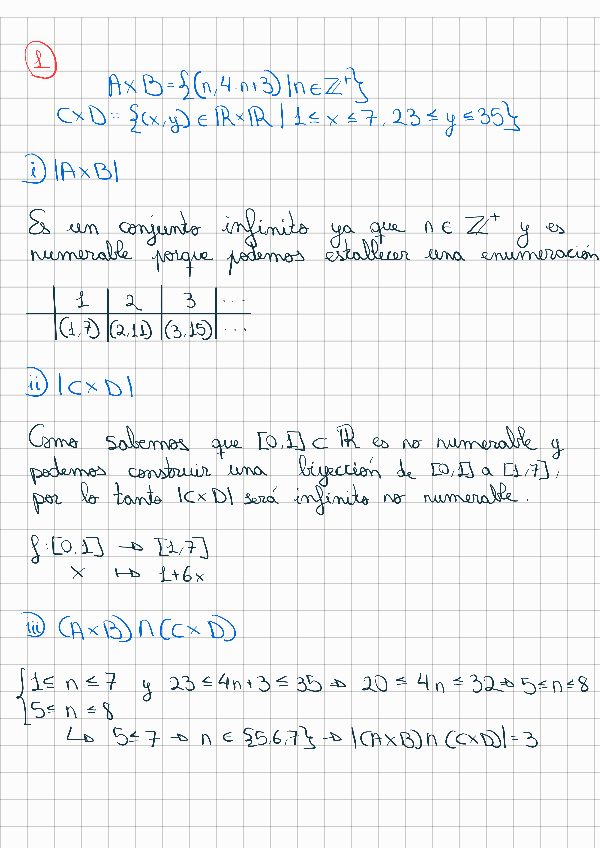 1
A×B = {(n, 4·n+3) | n ∈ ℤ⁺}
C×D = {(x,y) ∈ ℝ×ℝ | 1 ≤ x ≤ 7, 23 ≤ y ≤ 35}
i) |A×B|
Es un conjunto infinito ya que n ∈ ℤ⁺ y es
numerable porque podemos establecer una enumeración
1 | 2 | 3 | ...
(1,7) | (2,11) | (3,15) | ...
ii) |C×D|
Como sabemos que [0,1] ⊂ ℝ es no numerable y
podemos construir una biyección de [0,1] a [1,7],
por lo tanto |C×D| será infinito no numerable.
f: [0,1] → [1,7]
x ↦ 1+6x
iii) (A×B) ∩ (C×D)
{1 ≤ n ≤ 7 y 23 ≤ 4n+3 ≤ 35 → 20 ≤ 4n ≤ 32 → 5 ≤ n ≤ 8
{5 ≤ n ≤ 8
↳ 5 ≤ 7 → n ∈ {5,6,7} → |(A×B) ∩ (C×D)| = 3